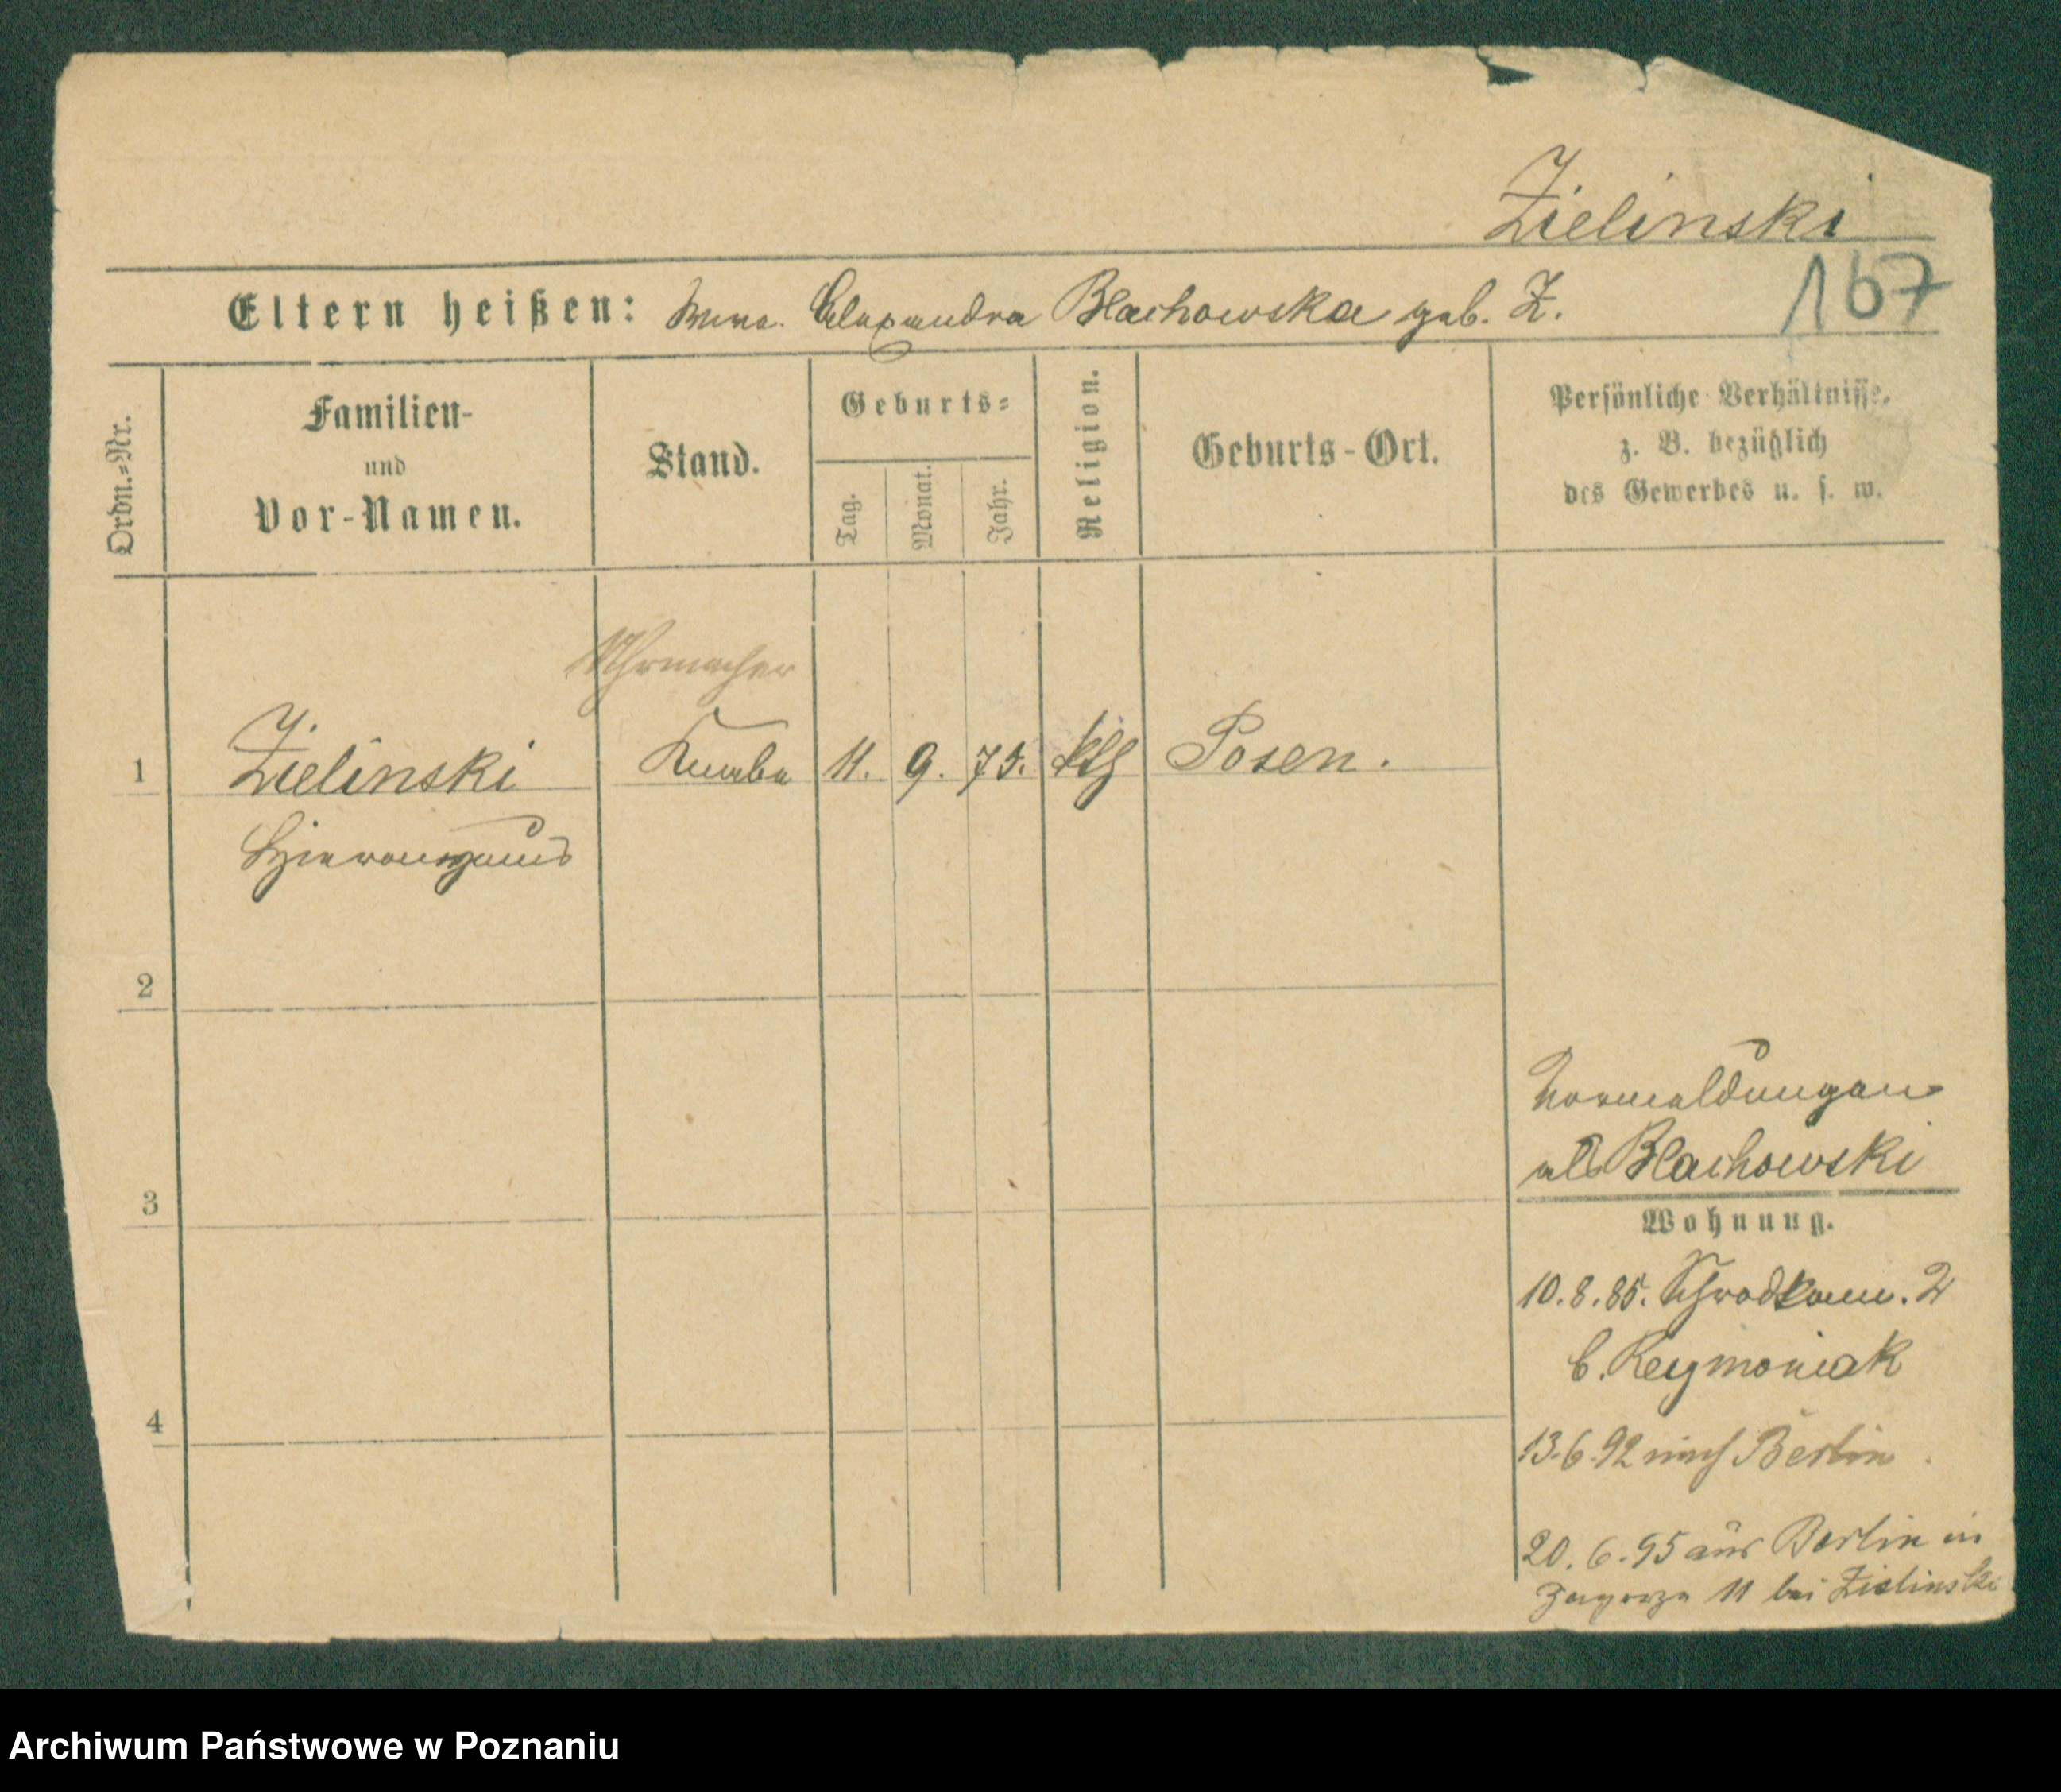 Zielinski
167
Eltern heißen: Alexandra Blachowska geb. Z.
Ordn.=Nr.
Familien-
und
Vor-Namen.
Stand.
Geburts=
Tag.
Monat.
Jahr.
Religion.
Geburts-Ort.
Persönliche Verhältnisse.
z. B. bezüglich
des Gewerbes u. s. w.
Uhrmacher
1 Zielinski Knabe 11. 9. 75. kth Posen.
Hieronymus
2
3
4
Vormeldungen
als Blachowski
Wohnung.
10.8.85. 2
b. Reymoniak
13.6.92 nach Berlin
20.6.95 aus Berlin in
Zagorze 11 bei Zielinski
Archiwum Państwowe w Poznaniu